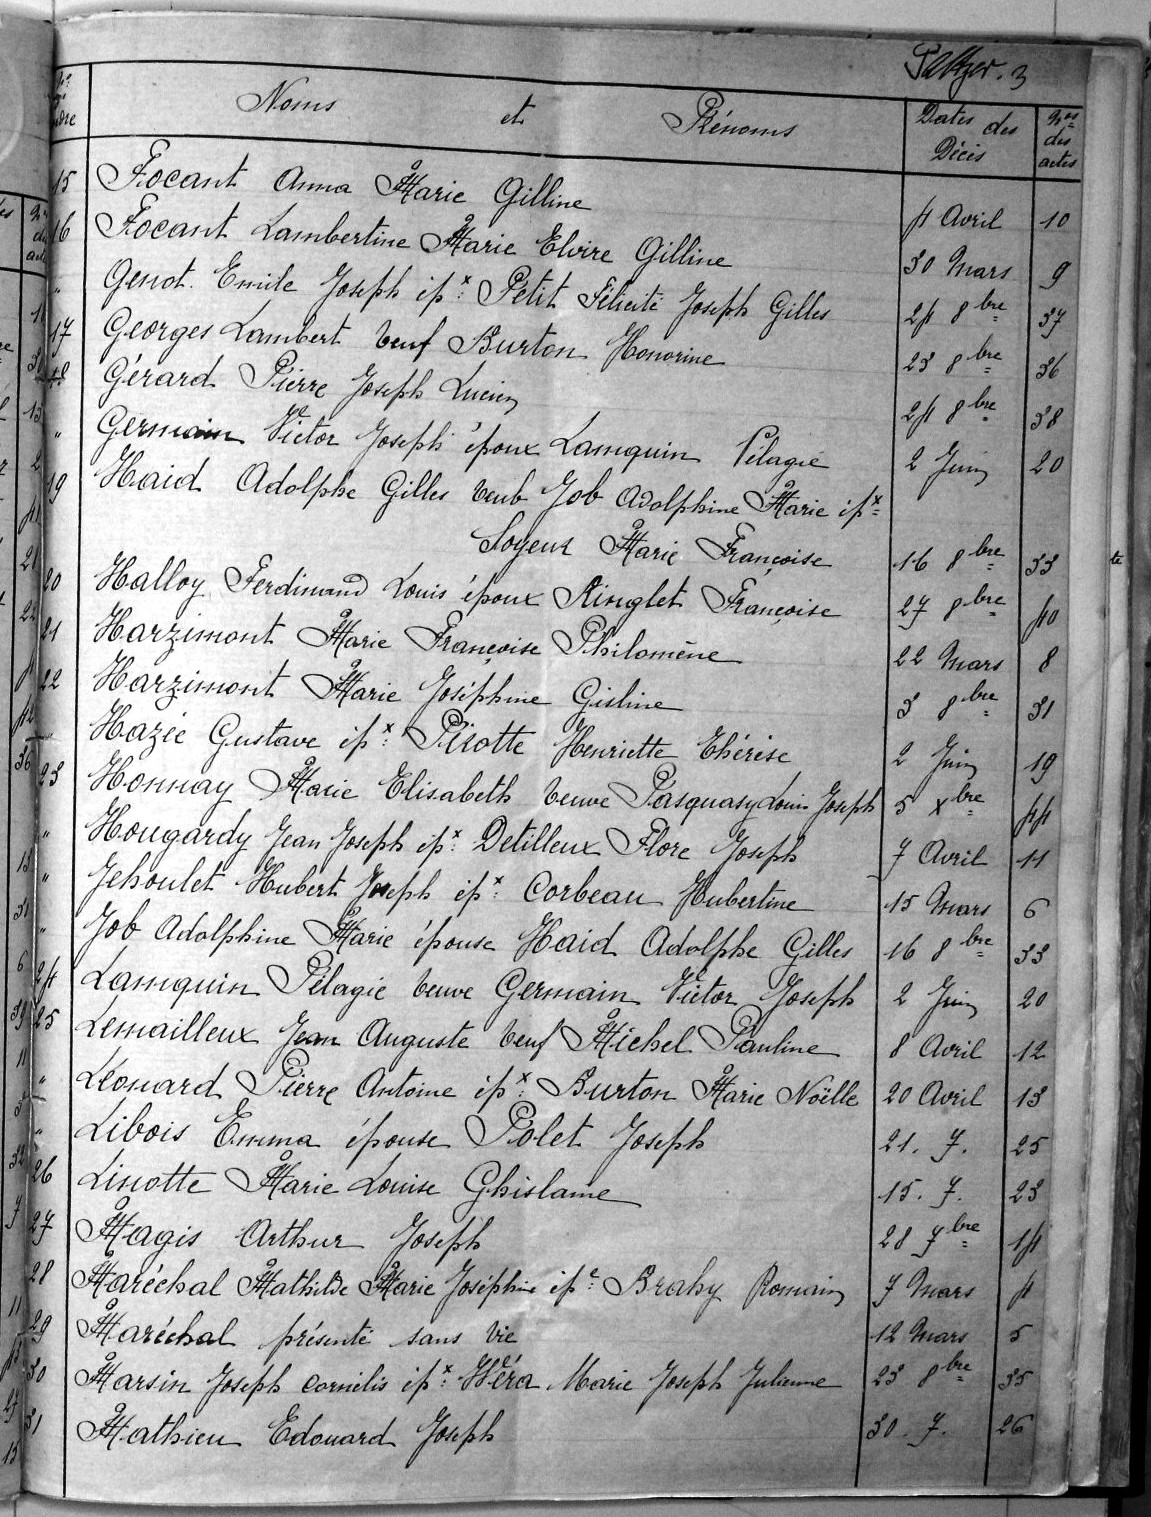 Peltzer. 3
Nos d'ordre Noms et Prénoms Dates des Décès Nos des actes
15 Focant Anna Marie Gilline 4 Avril 10
16 Focant Lambertine Marie Elvire Gilline 30 Mars 9
" Genot. Emile Joseph épx: Petit Félicité Joseph Gilles 24 8bre 37
17 Georges Lambert veuf Burton Honorine 23 8bre 36
18 Gérard Pierre Joseph Lucien 24 8bre 38
" Germain Victor Joseph époux Lamquin Pélagie 2 Juin 20
19 Haid Adolphe Gilles veuf Job Adolphine Marie épx
Soyeur Marie Françoise 16 8bre 33
20 Halloy Ferdinand Louis époux Ringlet Françoise 27 8bre 40
21 Harzimont Marie Françoise Philomène 22 Mars 8
22 Harzimont Marie Joséphine Gisline 3 8bre 31
" Hazée Gustave épx: Pirotte Henriette Thérèse 2 Juin 19
23 Honnay Marie Elisabeth veuve Pasquasy Louis Joseph 5 xbre 44
" Hougardy Jean Joseph épx: Detilleux Flore Joseph 7 Avril 11
" Jehoulet Hubert Joseph épx: Corbeau Hubertine 15 Mars 6
" Job Adolphine Marie épouse Haid Adolphe Gilles 16 8bre 33
24 Lamquin Pélagie veuve Germain Victor Joseph 2 Juin 20
25 Lemailleux Jean Auguste veuf Michel Pauline 8 Avril 12
" Léonard Pierre Antoine épx: Burton Marie Noëlle 20 Avril 13
" Libois Emma épouse Polet Joseph 21. 7. 25
26 Linotte Marie Louise Ghislaine 15. 7. 23
27 Magis Arthur Joseph 28 7bre 14
28 Maréchal Mathilde Marie Joséphine épe: Brahy Romain 7 Mars 4
29 Maréchal présenté sans vie 12 Mars 5
30 Marsin Joseph Cornélis épx: Héra Marie Joseph Julienne 23 8bre 35
31 Mathieu Edouard Joseph 30. 7. 26